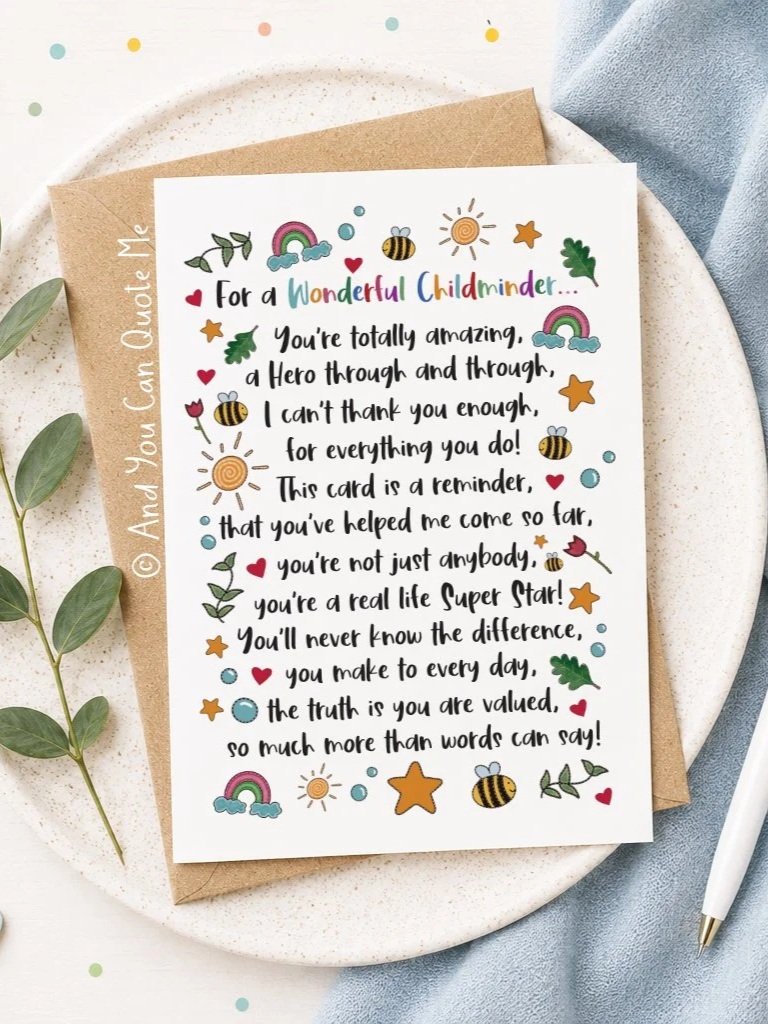 © And You Can Quote Me
For a Wonderful Childminder...
You're totally amazing,
a Hero through and through,
I can't thank you enough,
for everything you do!
This card is a reminder,
that you've helped me come so far,
you're not just anybody,
you're a real life Super Star!
You'll never know the difference,
you make to every day,
the truth is you are valued,
so much more than words can say!